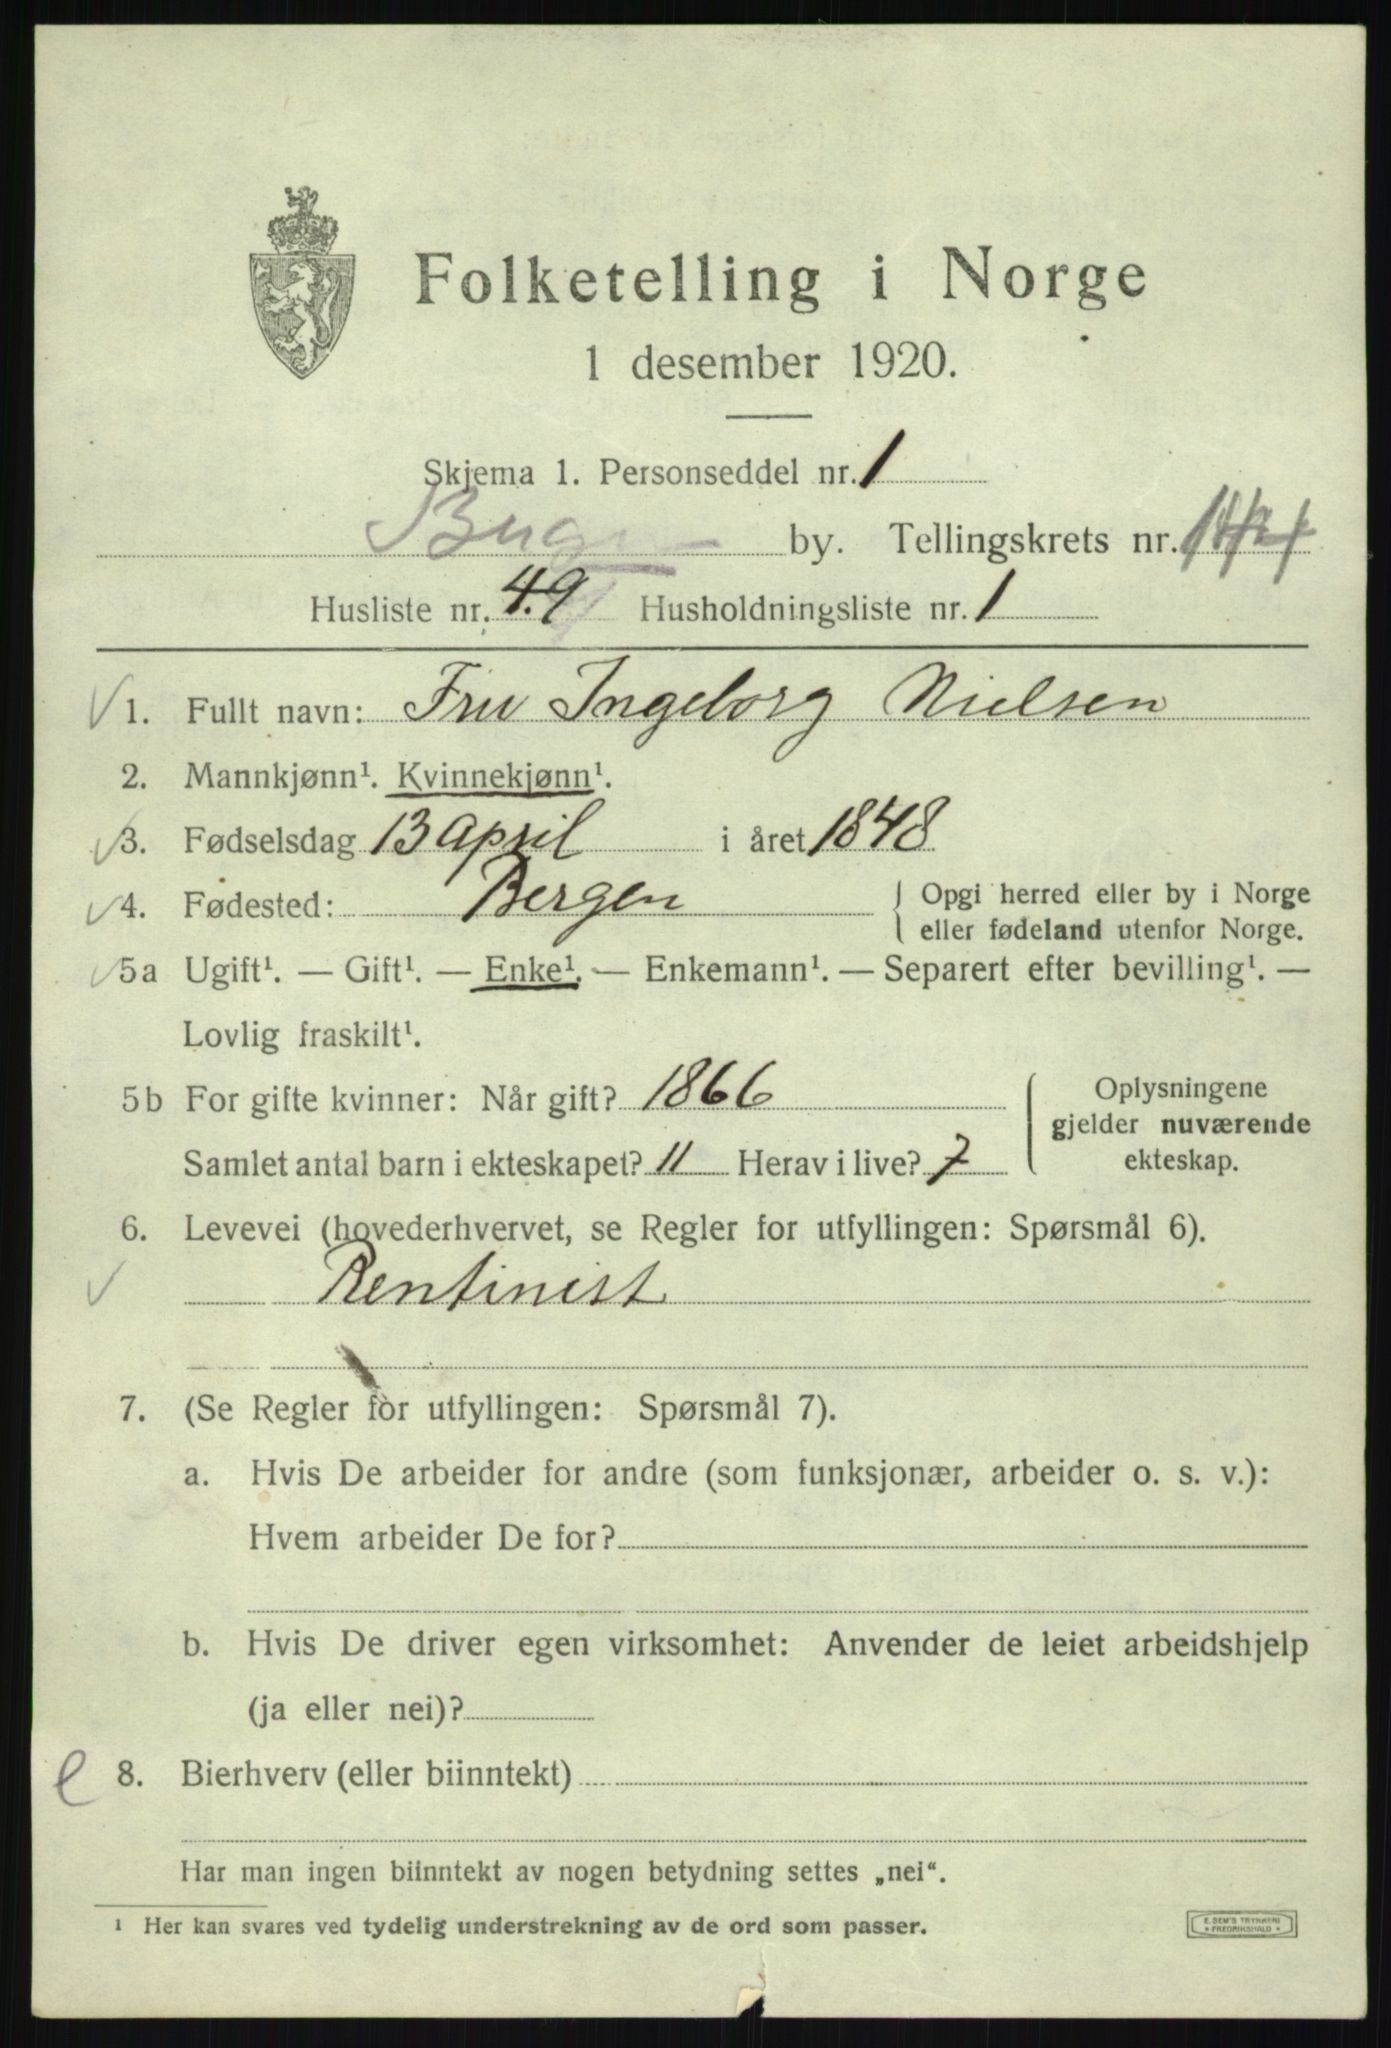 Folketelling i Norge
1 desember 1920.
Skjema 1. Personseddel nr. 1
by. Tellingskrets nr.
Husliste nr. 49 Husholdningsliste nr. 1
1. Fullt navn: Fru Ingeborg Nielsen
2. Mannkjønn¹. Kvinnekjønn¹.
3. Fødselsdag 13 april i året 1848
4. Fødested: Bergen { Opgi herred eller by i Norge
eller fødeland utenfor Norge.
5a Ugift¹. — Gift¹. — Enke¹. — Enkemann¹. — Separert efter bevilling¹. —
Lovlig fraskilt¹.
5b For gifte kvinner: Når gift? 1866
Samlet antal barn i ekteskapet? 11 Herav i live? 7
{ Oplysningene
gjelder nuværende
ekteskap.
6. Levevei (hovederhvervet, se Regler for utfyllingen: Spørsmål 6).
Rentinist
7. (Se Regler for utfyllingen: Spørsmål 7).
a. Hvis De arbeider for andre (som funksjonær, arbeider o. s. v.):
Hvem arbeider De for?
b. Hvis De driver egen virksomhet: Anvender de leiet arbeidshjelp
(ja eller nei)?
8. Bierhverv (eller biinntekt)
Har man ingen biinntekt av nogen betydning settes „nei“.
¹ Her kan svares ved tydelig understrekning av de ord som passer.
E. SEM'S TRYKKERI
* FREDRIKSHALD *